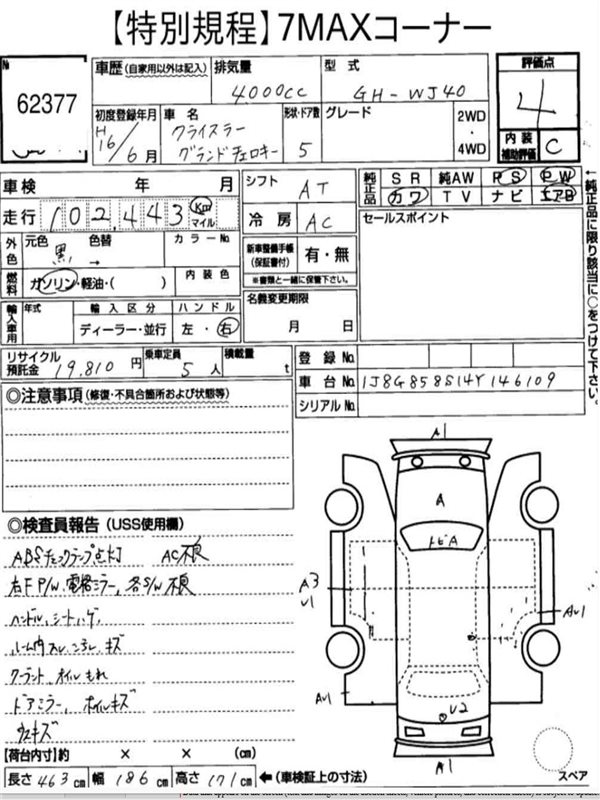 【特別規程】7MAXコーナー
№ 62377
車歴(自家用以外は記入)
排気量 4.000CC
型式 GH-WJ40
評価点 4
内装補助評価 C
初度登録年月 H16/6月
車名 クライスラー グランドチェロキー
形状・ドア数 5
グレード
2WD・4WD
車検 年 月
走行 102,443 Km マイル
シフト AT
冷房 AC
純正品 SR 純AW PS PW
カワ TV ナビ エアB
←純正品に限り該当に○をつけて下さい。
セールスポイント
外色 元色 黒 色替 → カラーNo
内装色
燃料 ガソリン・軽油・( )
新車整備手帳(保証書付) 有・無
※書類と一緒に保管下さい。
名義変更期限 月 日
輸入車用 年式 輸入区分 ハンドル
ディーラー・並行 左・右
リサイクル預託金 19,810円
乗車定員 5人
積載量 t
登録No
車台No 1J8G858S14Y146109
シリアルNo
◎注意事項(修復・不具合箇所および状態等)
◎検査員報告(USS使用欄)
ABSチェックランプ点灯 AC不良
右F P/W、電格ミラー、各S/W不良
ハンドル、シートハゲ
ルーム内スレ、コゲ、キズ
クーラント、オイルもれ
ドアミラー、ホイルキズ
ガラスキズ
A1
A
トビA
A3
U1
AU1
AU1
U2
A1
スペア
【荷台内寸】約 × × (cm)
長さ 463cm 幅 186cm 高さ 171cm ←(車検証上の寸法)